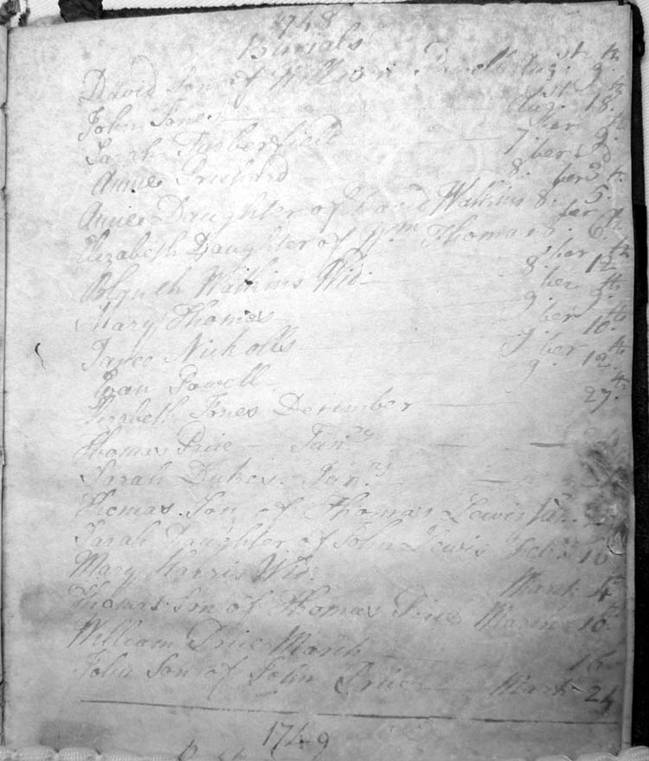 1748
Burials
David Son of William Powell Aug.st 9.th
John Jones Aug.st 18.th
Sarah 7.ber 9.th
Anne Prichard 8.ber 2.d
Anne Daughter of David Watkins 8.ber 5.th
Elizabeth Daughter of W.m Thomas 8.ber 6.th
Watkins Wid. 8.ber 12.th
Mary Thomas 9.ber 9.th
Janee Nicholls 9.ber 10.th
Evan Powell 9.ber 12.th
Elizabeth Jones December 27.th
Thomas Price Jan.ry
Sarah Dukes Jan.ry
Thomas Son of Thomas Lewis Jan.
Sarah Daughter of John Lewis Feb. 10
Mary Harris Wid. March 4.th
Thomas Son of Thomas Price March 10.th
William Price March 16
John Son of John Price March 24
1749